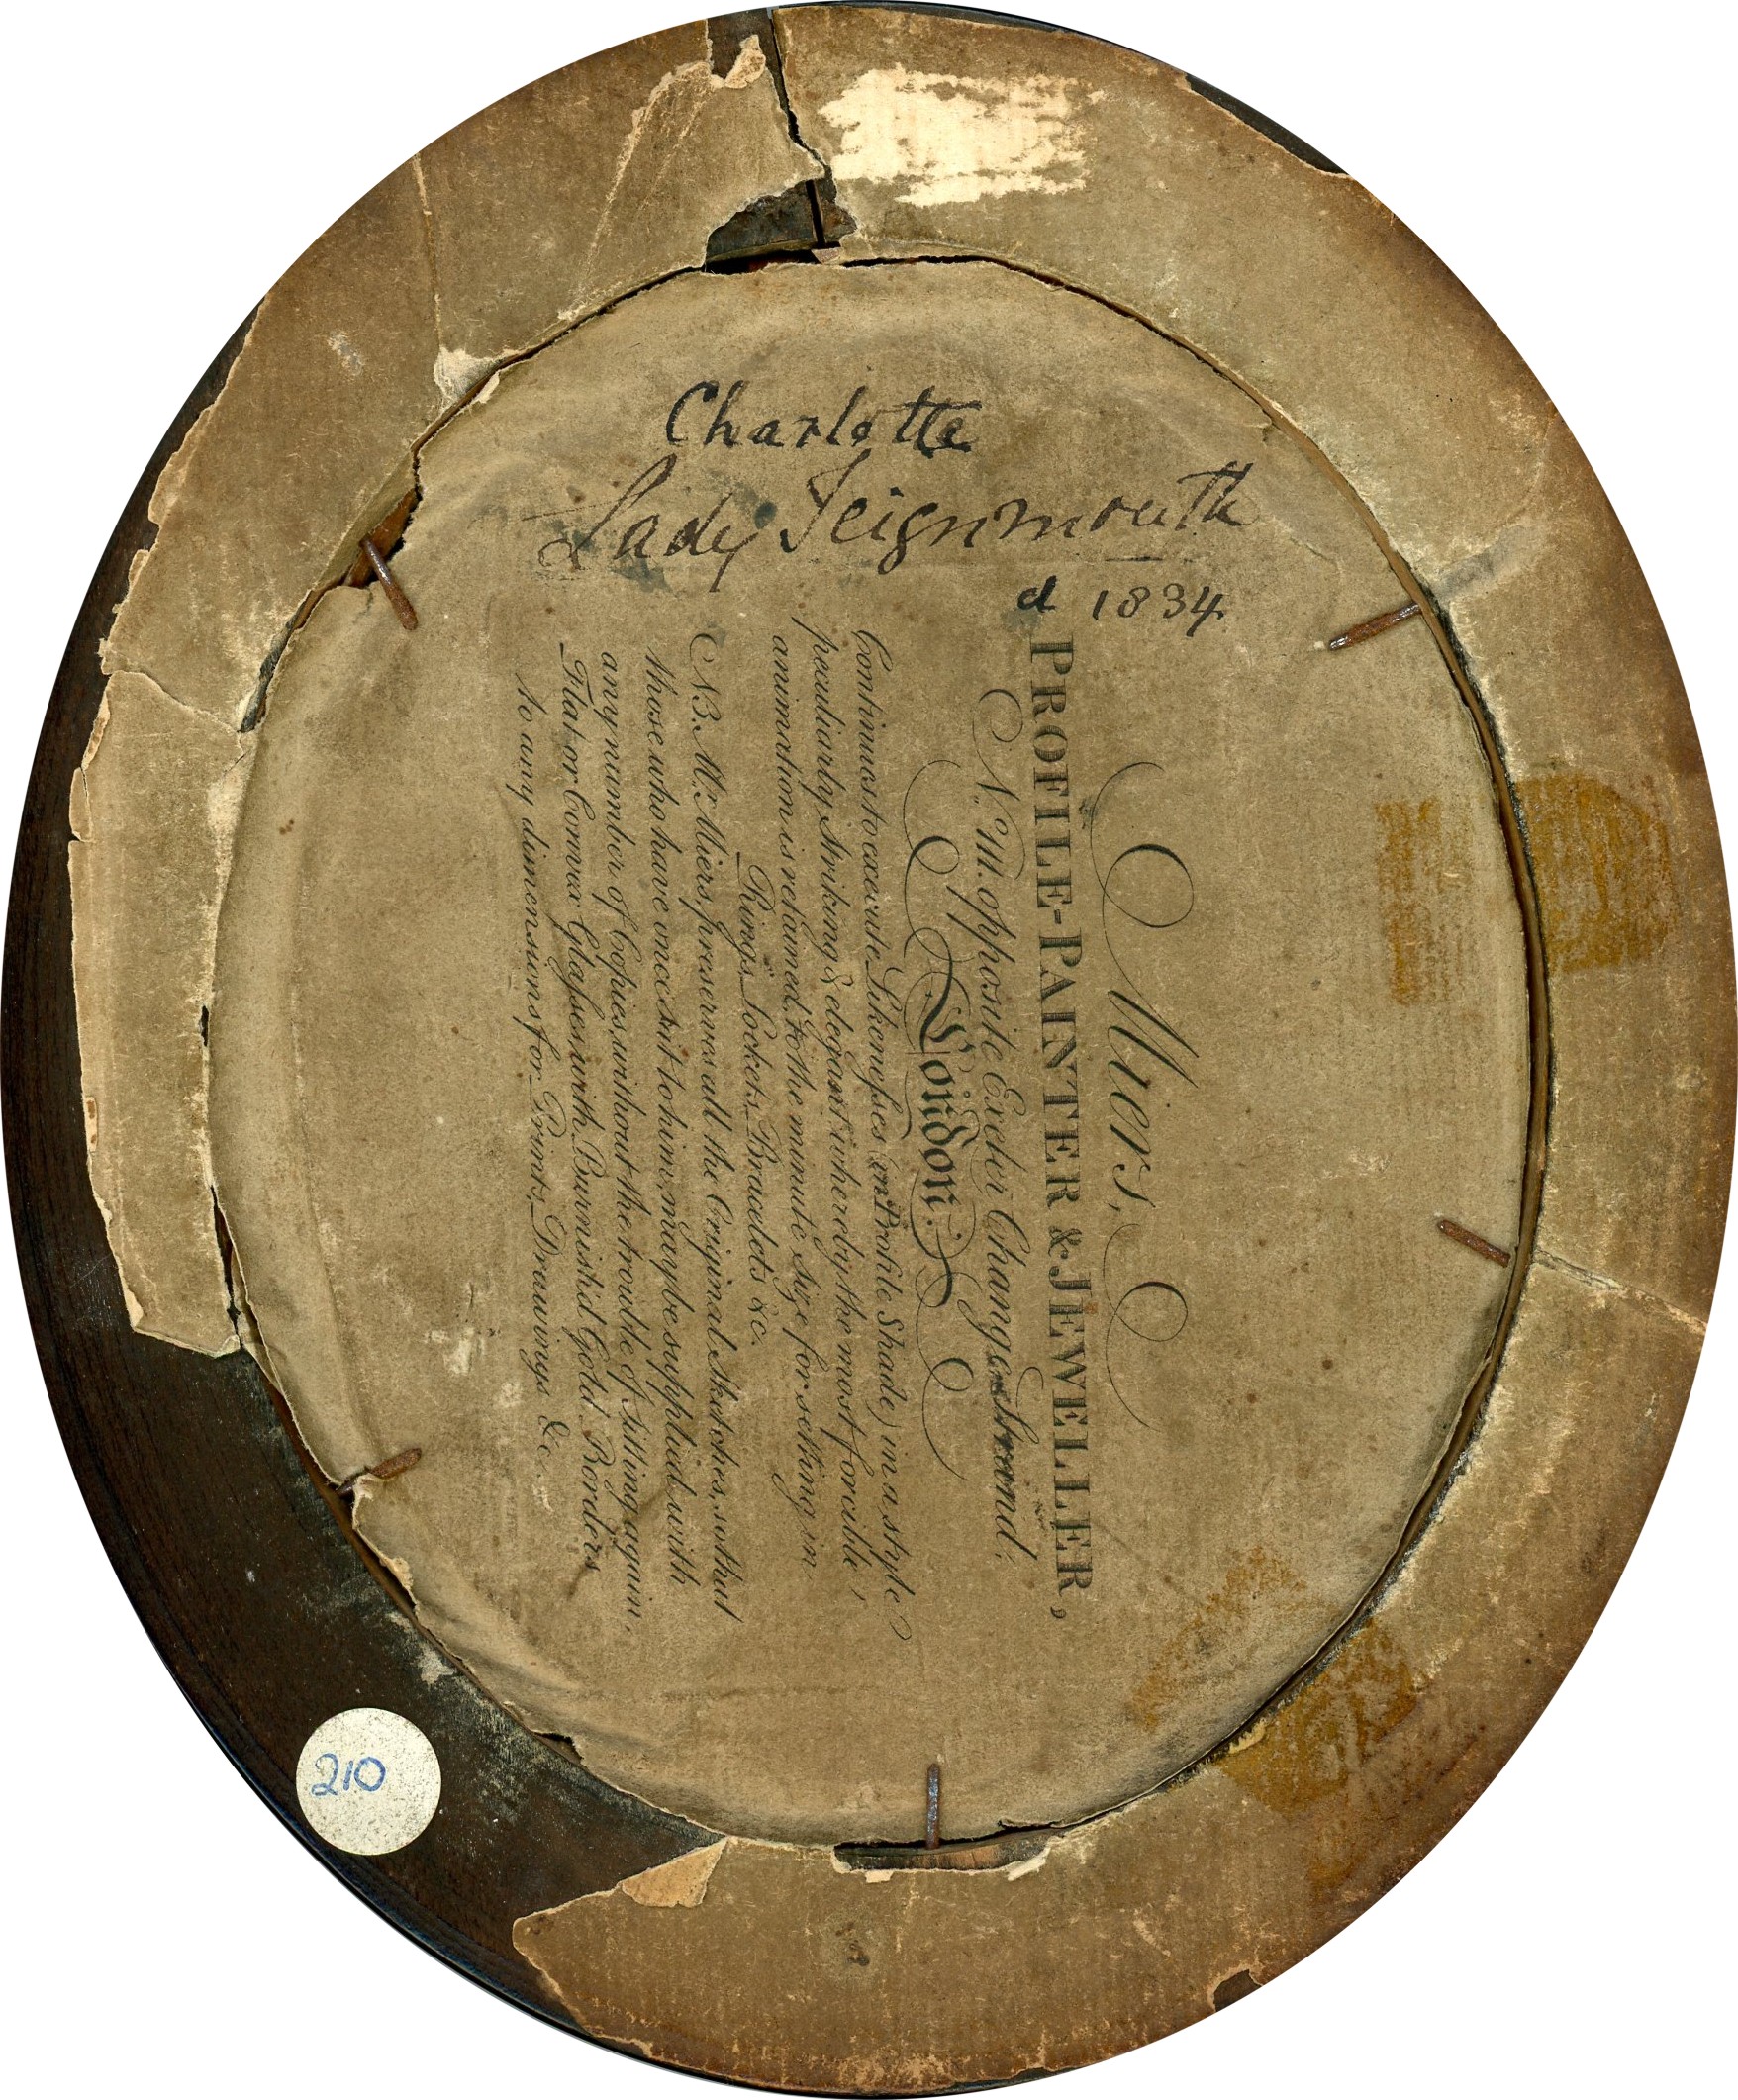 Charlotte
Lady Teignmouth
d 1834
Miers,
PROFILE-PAINTER & JEWELLER,
No. 111. opposite Exeter Change Strand,
London.
Continues to execute Likenesses (in Profile Shade) in a style
peculiarly striking & elegant, whereby the most forcible
animation is retained, to the minute size for setting in
Rings, Lockets, Bracelets &c.
NB. Mr. Miers, preserves all the Original Sketches, so that
those who have once sat to him, may be supplied with
any number of Copies without the trouble of sitting again.
Flat or Convex Glasses with Burnish'd Gold Borders
to any dimensions for Prints, Drawings &c.
210